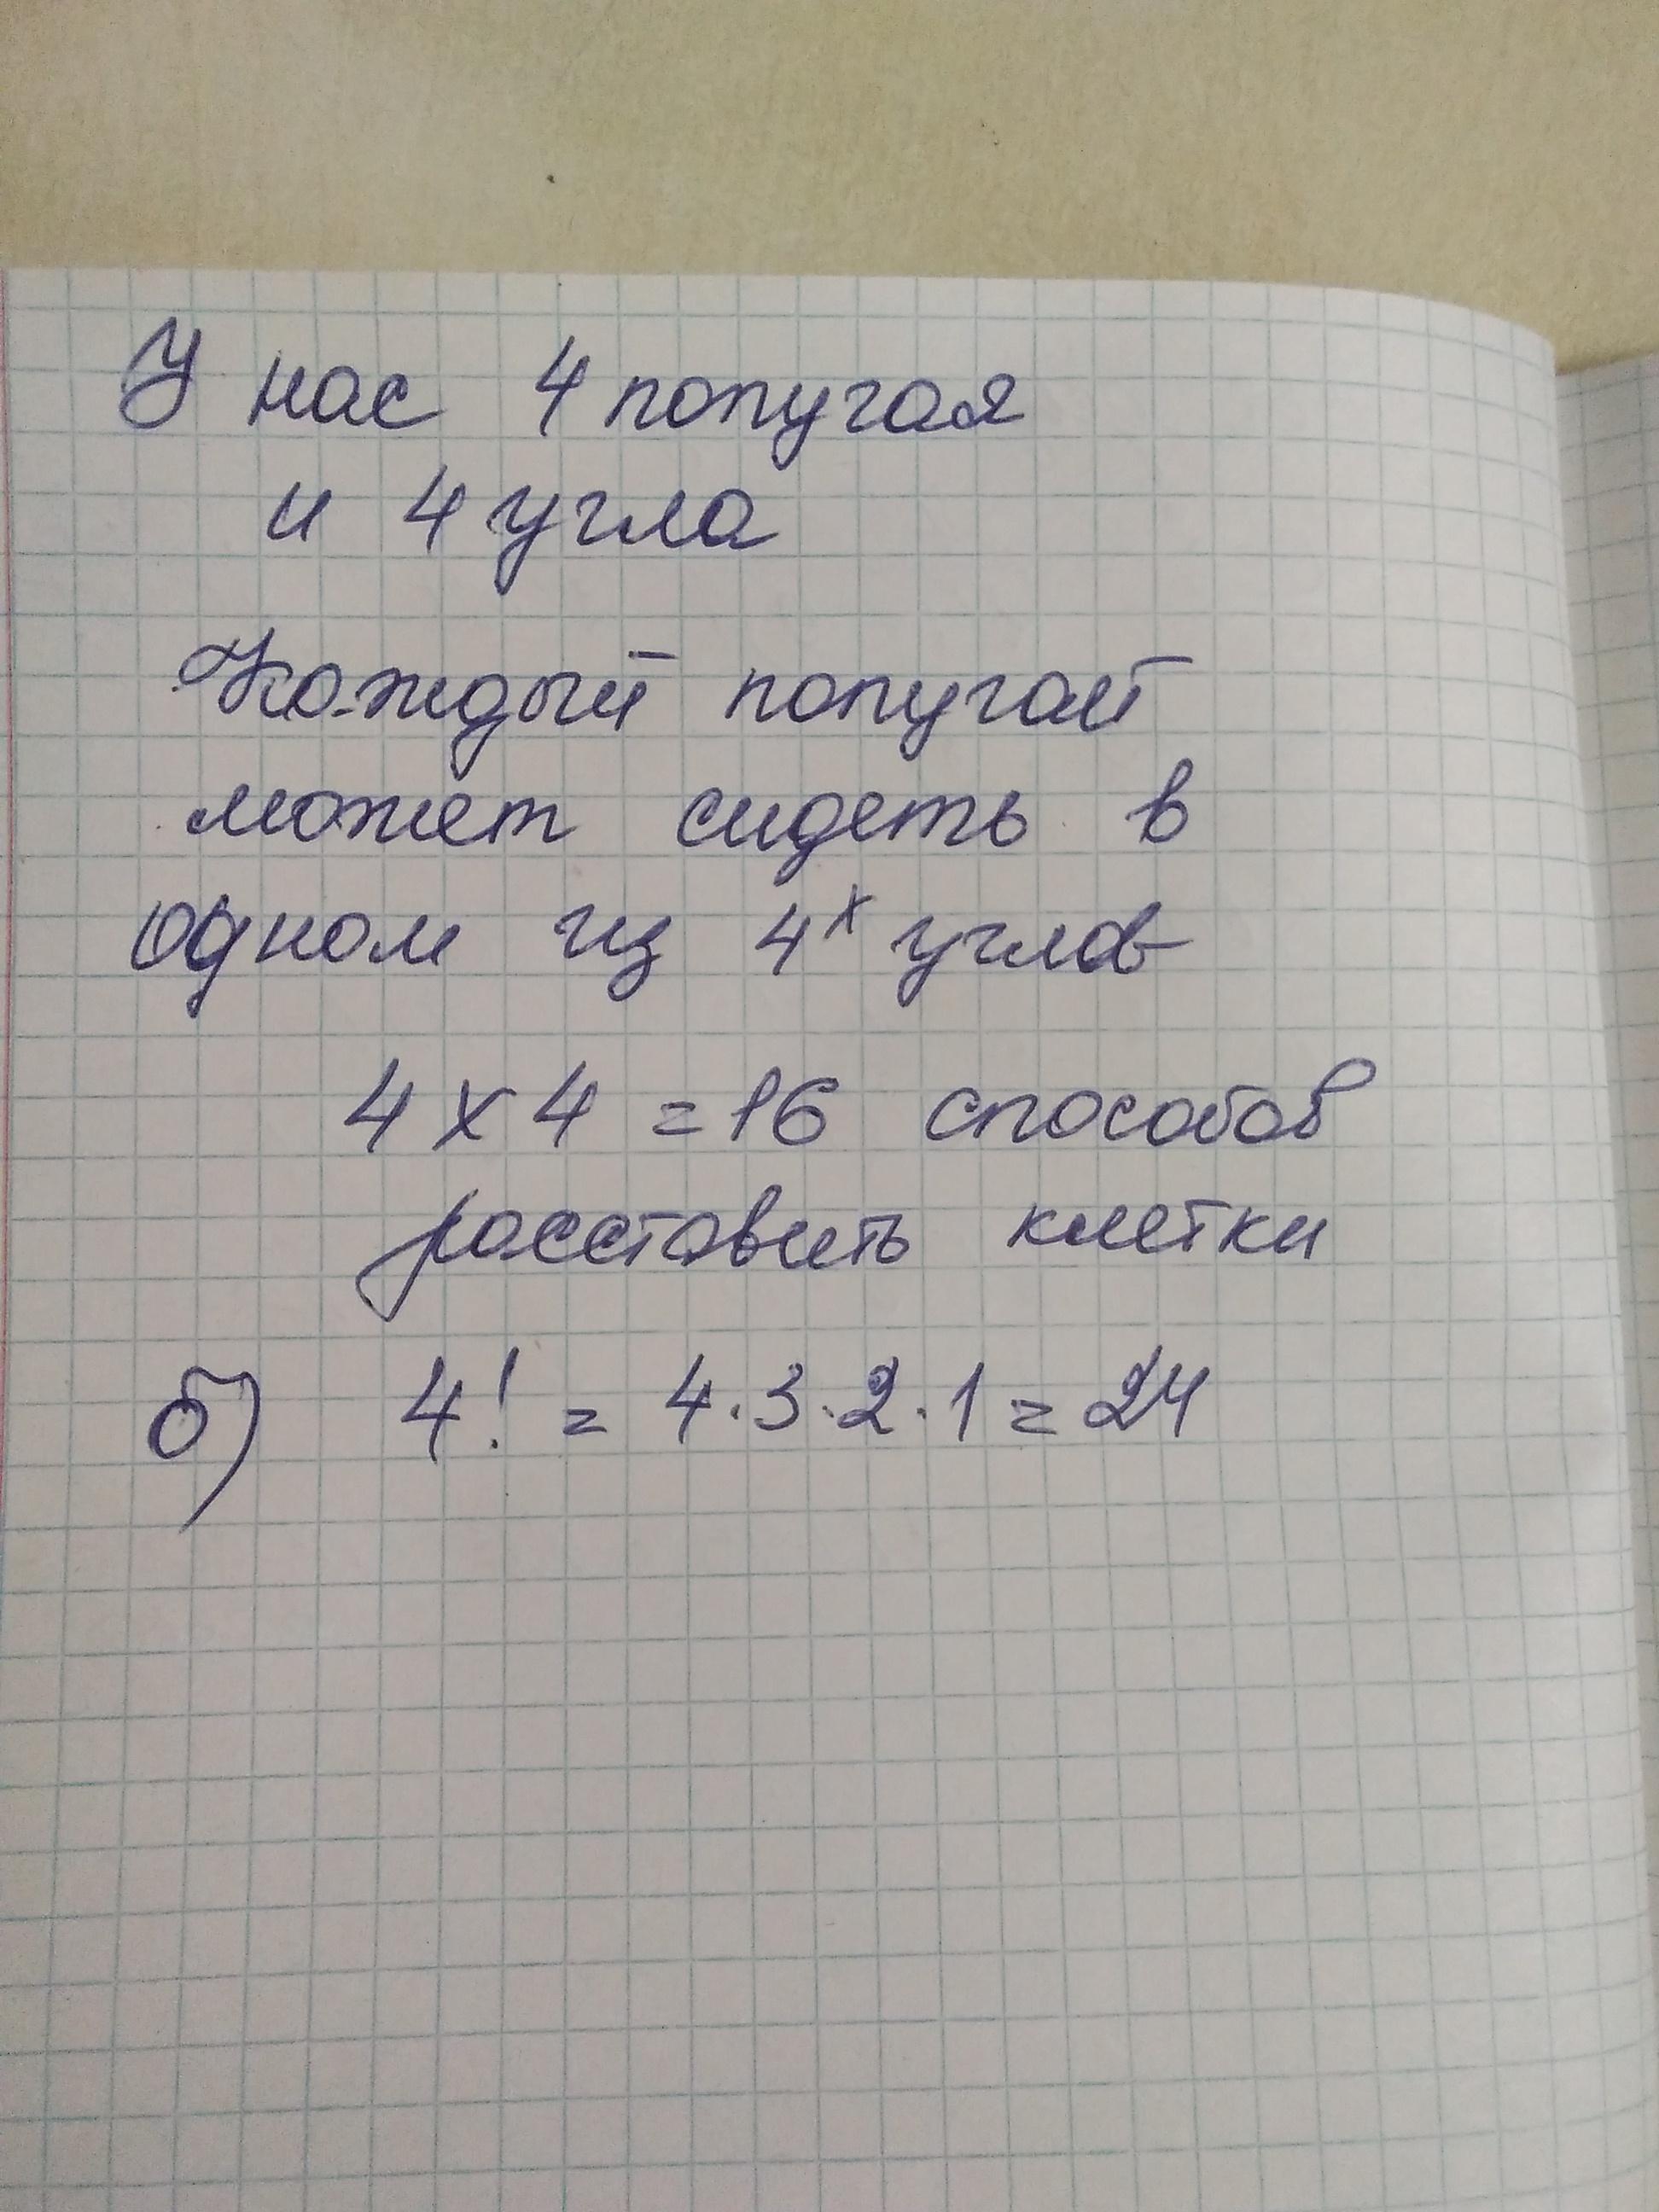 У нас 4 попугая
и 4 угла
Каждый попугай
может сидеть в
одном из 4х углов
4 х 4 = 16 способов
расставить клетки
б) 4! = 4 · 3 · 2 · 1 = 24